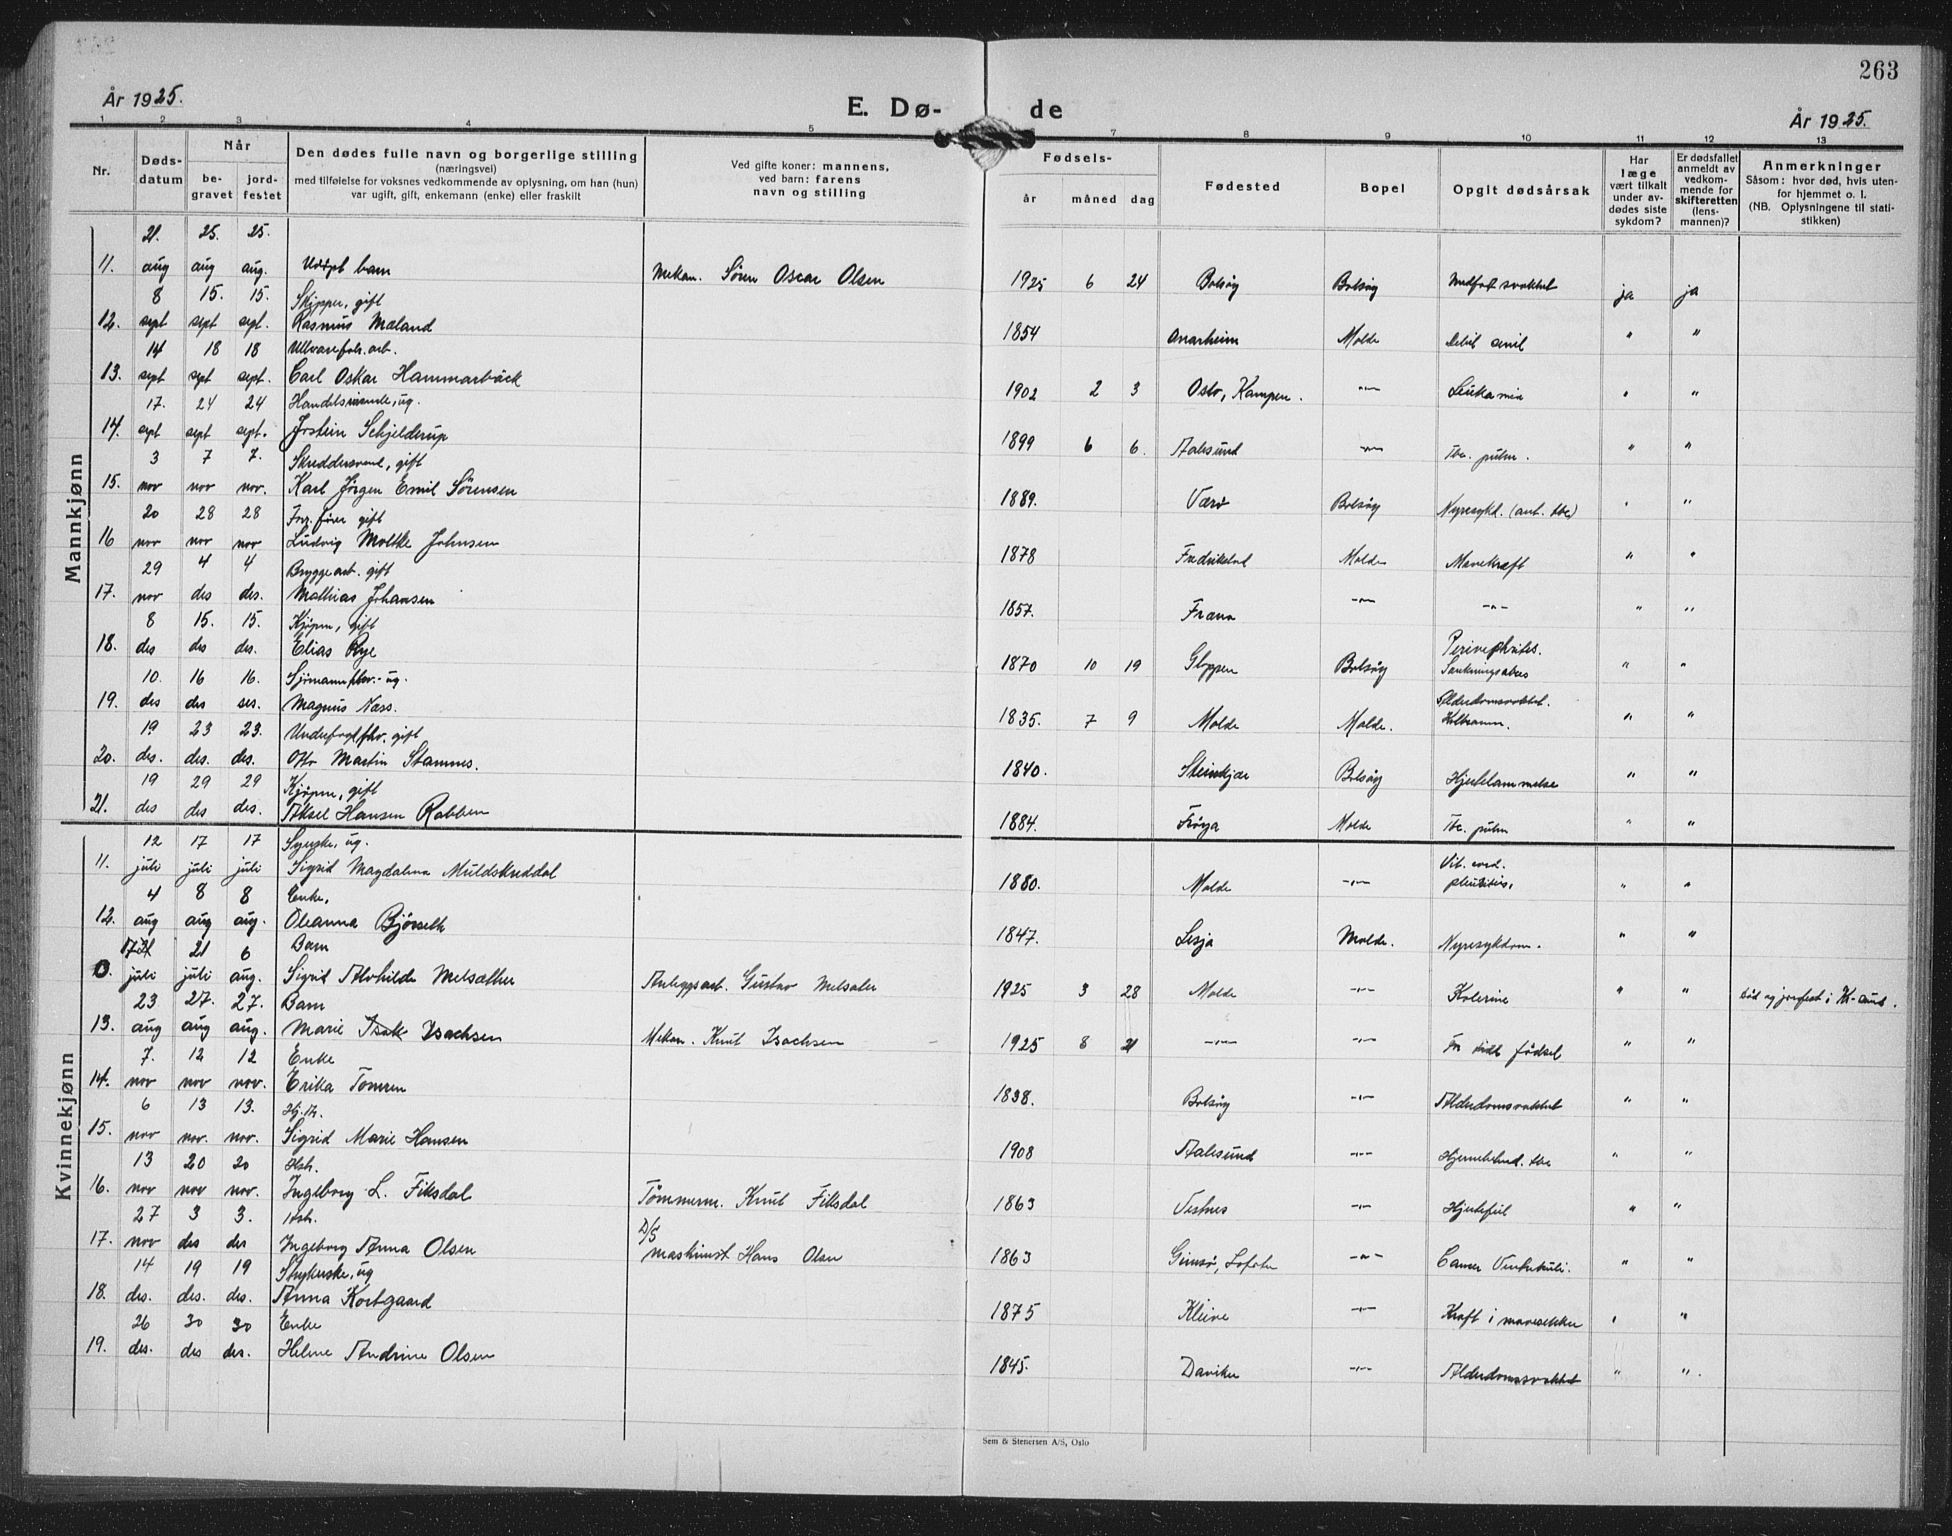 263
År 1925.
E. Dø- de
År 1925.
1 2 3 4 5 7 8 9 10 11 12 13
Nr.
Døds-
datum
Når
be-
gravet
jord-
festet
Den dødes fulle navn og borgerlige stilling
(næringsvei)
med tilføielse for voksnes vedkommende av oplysning, om han (hun)
var ugift, gift, enkemann (enke) eller fraskilt
Ved gifte koner: mannens,
ved barn: farens
navn og stilling
Fødsels-
år måned dag
Fødested
Bopel
Opgit dødsårsak
Har
læge
vært tilkalt
under av-
dødes siste
sykdom?
Er dødsfallet
anmeldt av
vedkom-
mende for
skifteretten
(lens-
mannen)?
Anmerkninger
Såsom: hvor død, hvis uten-
for hjemmet o. l.
(NB. Oplysningene til stati-
stikken)
Mannkjønn
21. 25. 25.
11. aug aug aug. Udøpt barn Mekan. Sören Oscar Olsen 1925 6 24 Bolsøy Bolsøy Medfødt svakhet ja ja
8 15. 15. Skipper, gift
12. sept sept sept. Rasmus Mæland 1854 Molde " "
14 18 18 Ullvarefabr. arb.
13. sept sept. sept. Carl Oskar Hammarbäck 1902 2 3 Oslo, Kampen. -"- Leukämie " "
17. 24 24 Handelsreisende, ug.
14. sept sept sept. Jostein Schjelderup 1899 6 6. Aalesund -"- Tbc. pulm. " "
3 7 7. Skreddersvend, gift
15. nov nov nov. Karl Jörgen Emil Sörensen 1889. Værø Bolsøy Nyresykd. (ant. tbc) " "
20 28 28 Forr. fører gift
16 nov nov nov Ludvig Moltke Johnsen 1878 Fredrikstad Molde Mavekræft " "
29 4 4 Bryggearb. gift
17. nov des des. Mathias Johansen 1857. Fræna -"- -"- " "
8 15. 15. Kjøpm, gift
18. des des des. Elias Rye 1870 10 19 Gloppen Bolsøy " "
10. 16 16. Sjömann ug.
19. des des ses. Magnus Næss. 1835. 7 9 Molde Molde. Alderdomssvakhet. " "
19 23 23. gift
20. des. des. des. Otto Martin Stamnes. 1840. Steinkjær Bolsøy Hjertelammelse " "
19 29 29 Kjøpm, gift
21. des des des. Aksel Hansen Rabben 1884. Frøya Molde Tbc. pulm " "
Kvinnekjønn
12 17 17 Syerske, ug.
11. juli juli juli Sigrid Magdalena Muldskreddal 1880. Molde -"- Vit. cord. " "
4 8 8 Enke.
12. aug aug aug. Oleanna Bjørseth 1847. Lesja Molde. Nyresykdom. " "
17 21 6 Barn
0. juli juli aug. Sigrid Alvhilde Melsæther Anleggsarb. Gustav Melsæter 1925 3 28 Molde -"- Kolerine " "
23 27. 27. Barn
13. aug aug aug. Marie Isak Isachsen Mekan. Knut Isachsen 1925 8 21 -"- -"- For tidl fødsel " "
7. 12 12 Enke
14. nov nov nov. Erika Tomren 1838. Bolsøy -"- Alderdomssvakhet " "
6 13 13.
15. nov nov. nov. Sigrid Marie Hansen 1908 Aalesund -"- Hjernebetend. tbc " "
13 20 20 Hstr.
16. nov nov nov. Ingeborg L. Fiksdal Tømmerm. Knut Fiksdal 1863 Vestnes -"- Hjertefeil " "
27 3 3. Hstr. D/S
17. nov des des Ingeborg Anna Olsen maskinist Hans Olsen 1863 Gimsø, Lofoten -"- Cancer Ventrikuli. " "
14 19 19 Strykerske, ug
18. des. des. des. Anna Kortgaard 1875 Kleive -"- Kræft i mavesekken " "
26 30 30 Enke
19. des. des des. Helene Andrine Olsen 1845. Daviken -"- Alderdomssvakhet " ".
Sem & Stenersen A/S, Oslo